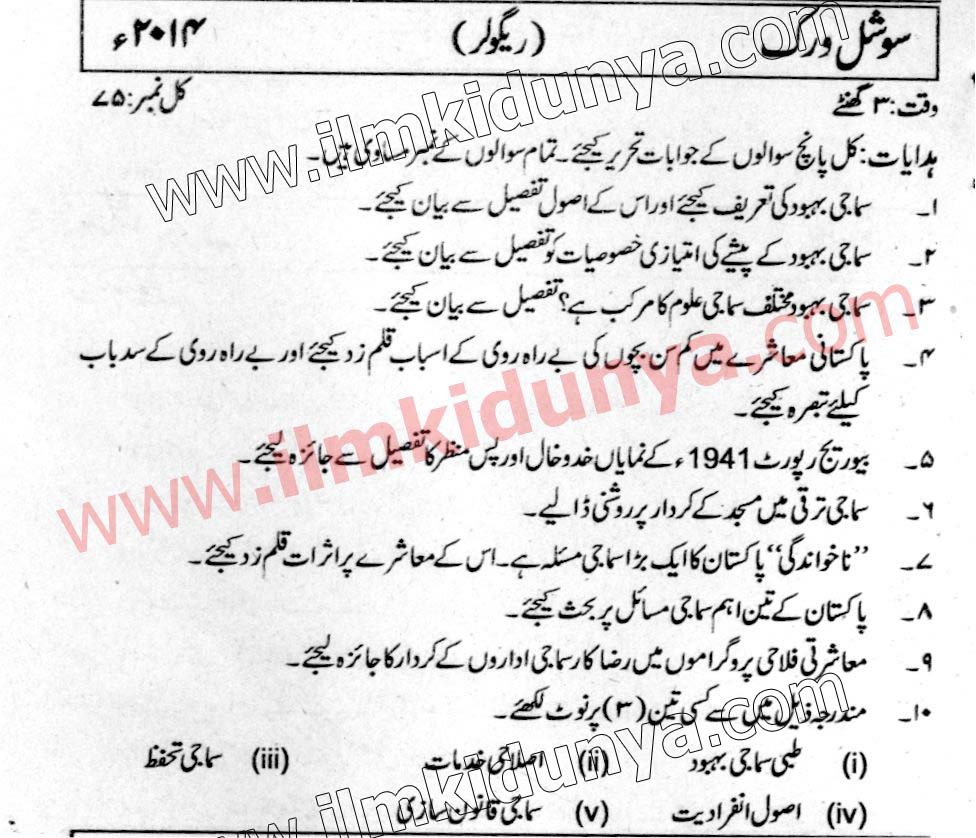 سوشل ورک (ریگولر) ۲۰۱۴ء
وقت: ۳ گھنٹے کل نمبر: ۷۵
ہدایات: کل پانچ سوالوں کے جوابات تحریر کیجئے۔ تمام سوالوں کے نمبر مساوی ہیں۔
۱۔ سماجی بہبود کی تعریف کیجئے اور اس کے اصول تفصیل سے بیان کیجئے۔
۲۔ سماجی بہبود کے پیشے کی امتیازی خصوصیات کو تفصیل سے بیان کیجئے۔
۳۔ سماجی بہبود مختلف سماجی علوم کا مرکب ہے؟ تفصیل سے بیان کیجئے۔
۴۔ پاکستانی معاشرے میں کم سن بچوں کی بے راہ روی کے اسباب قلم زد کیجئے اور بے راہ روی کے سدباب
کیلئے تبصرہ کیجئے۔
۵۔ بیوریج رپورٹ 1941ء کے نمایاں خدوخال اور پس منظر کا تفصیل سے جائزہ لیجئے۔
۶۔ سماجی ترقی میں مسجد کے کردار پر روشنی ڈالیے۔
۷۔ ”ناخواندگی“ پاکستان کا ایک بڑا سماجی مسئلہ ہے۔ اس کے معاشرے پر اثرات قلم زد کیجئے۔
۸۔ پاکستان کے تین اہم سماجی مسائل پر بحث کیجئے۔
۹۔ معاشرتی فلاحی پروگراموں میں رضا کار سماجی اداروں کے کردار کا جائزہ لیجئے۔
۱۰۔ مندرجہ ذیل میں سے کسی تین (۳) پر نوٹ لکھئے۔
(i) طبی سماجی بہبود (ii) اصلاحی خدمات (iii) سماجی تحفظ
(iv) اصول انفرادیت (v) سماجی قانون سازی
www.ilmkidunya.com
www.ilmkidunya.com
www.ilmkidunya.com